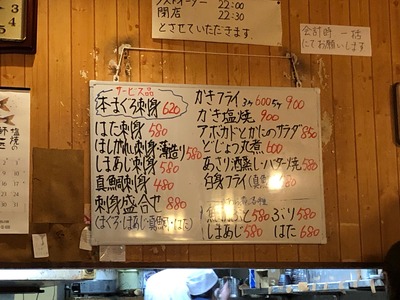 ラストオーダー 22:00
閉店 22:30
とさせていただきます.
会計時一括
にてお願いします
サービス品
本まぐろ刺身 620
はた刺身 580
ほしがれい刺身・薄造り 580
しまあじ刺身 580
真鯛刺身 480
刺身盛合せ 880
(まぐろ・しまあじ・真鯛・はた)
かきフライ 3ヶ 600 5ヶ 900
かき塩焼 900
アボカドとかにのサラダ 850
どじょう丸煮 600
あさり酒蒸し・バター焼 580
白身フライ(真
580 ぶり 580
しまあじ 580 はた 680
塩焼